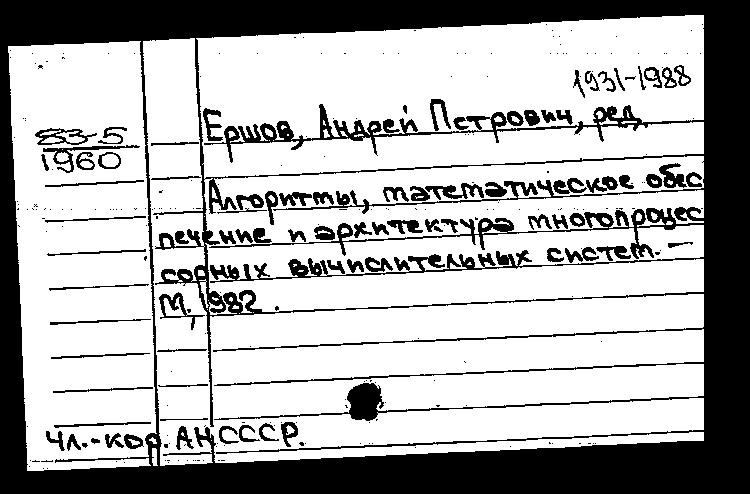 1931-1988
83-5
1960
Ершов, Андрей Петрович, ред.
Алгоритмы, математическое обес
печение и архитектура многопроцес
сорных вычислительных систем. —
М., 1982.
Чл.-кор. АН СССР.